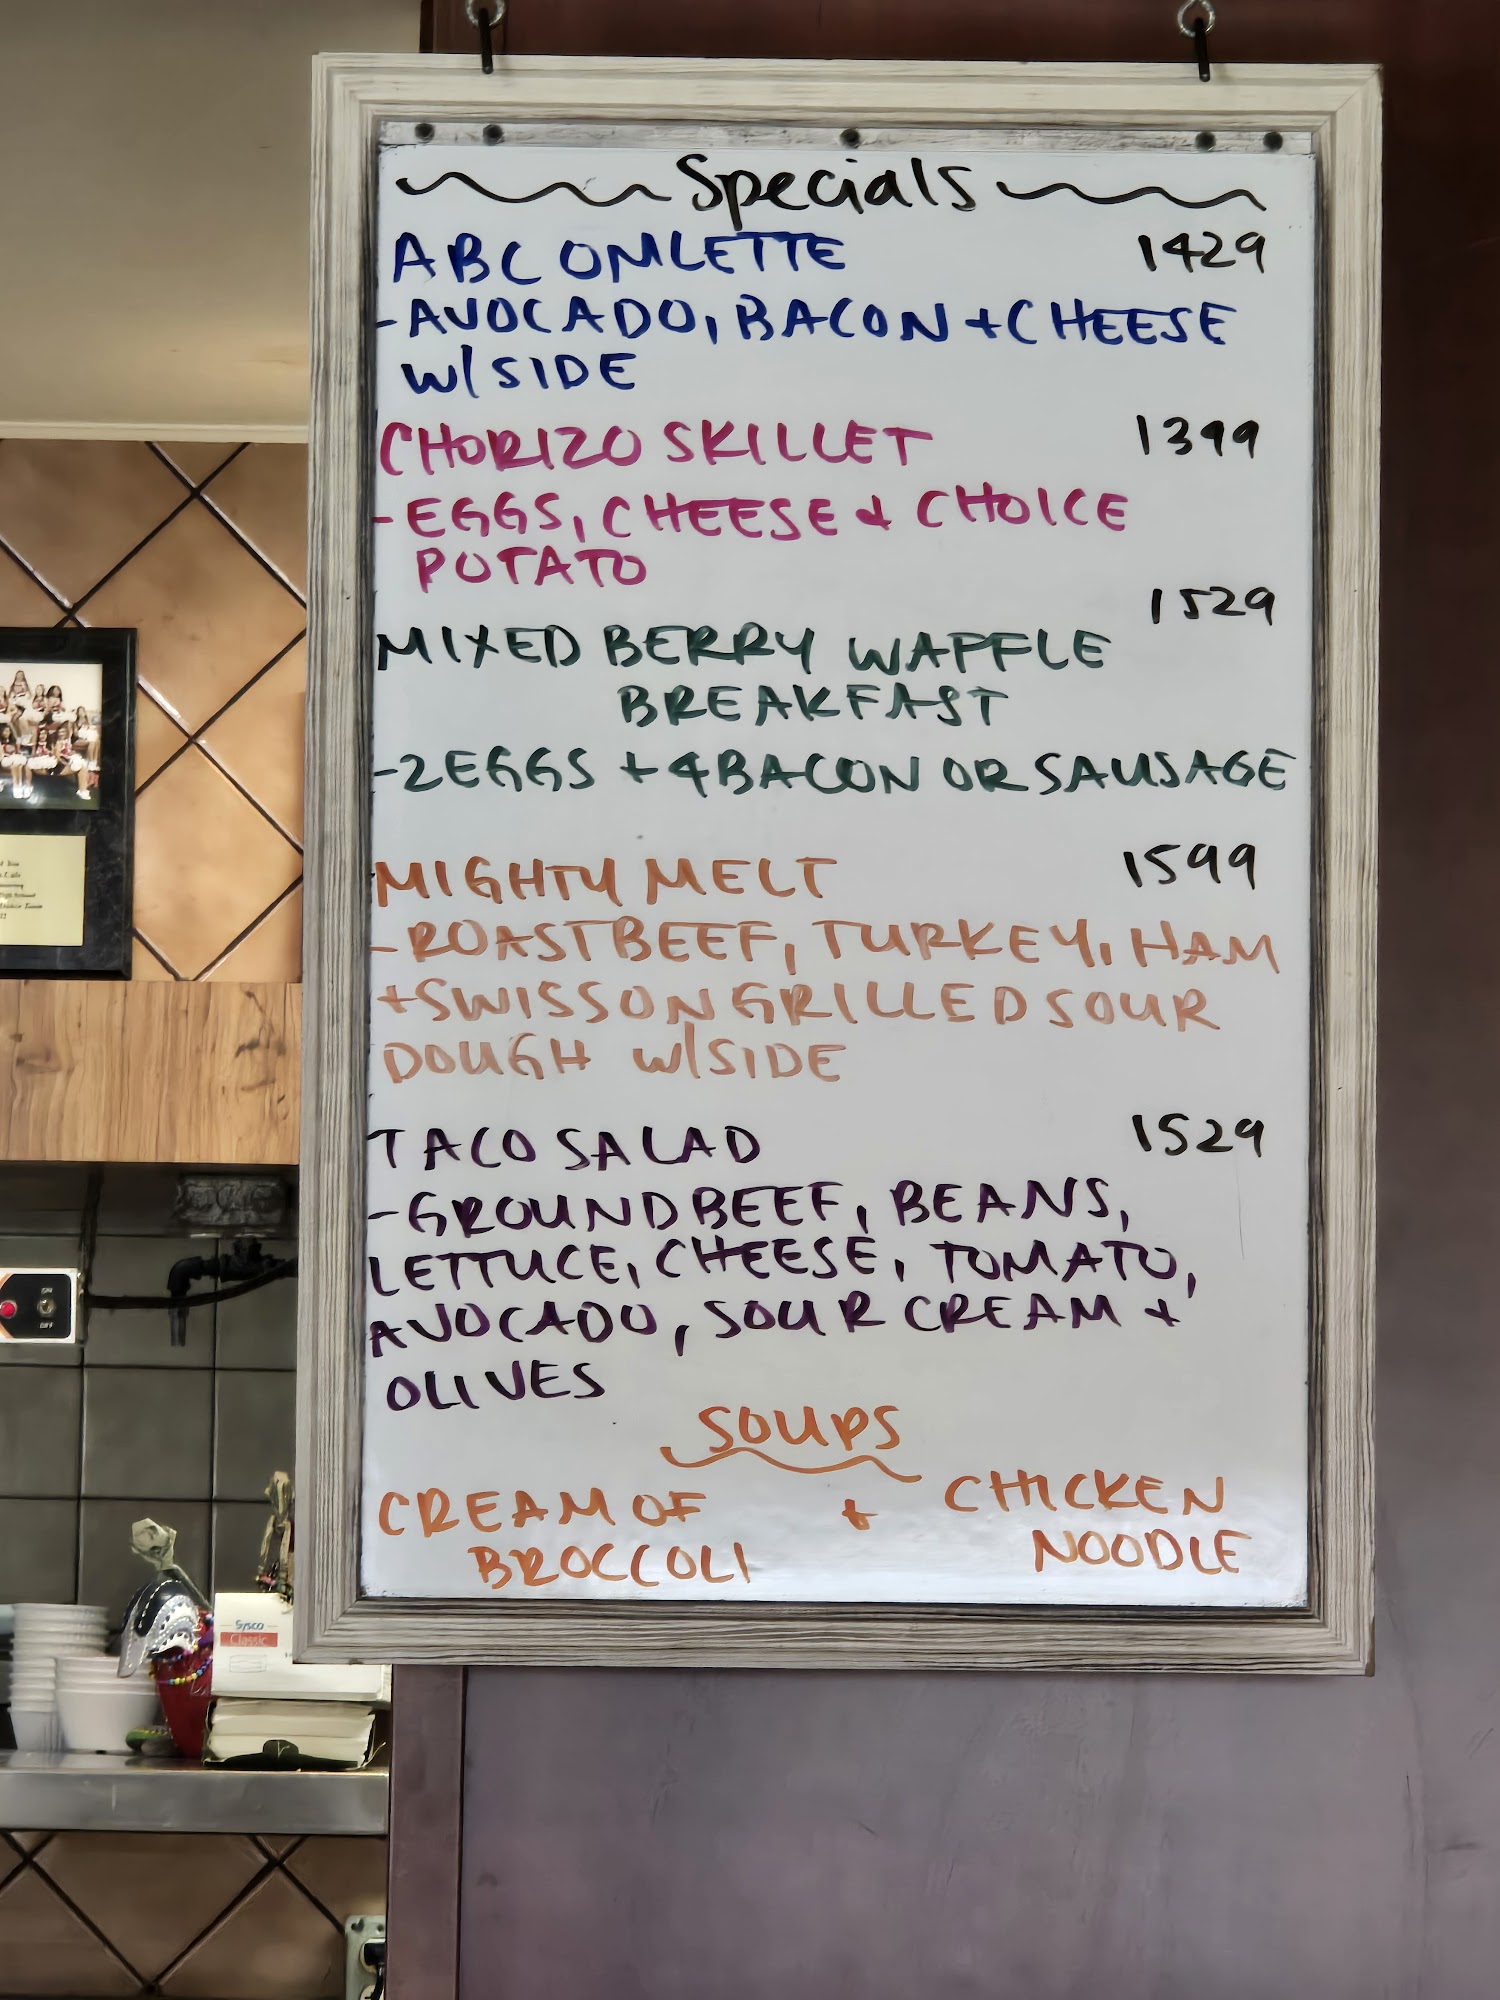 Specials
ABC OMLETTE 1429
-AVOCADO, BACON + CHEESE
W/SIDE
CHORIZO SKILLET 1399
-EGGS, CHEESE & CHOICE
POTATO
1529
MIXED BERRY WAFFLE
BREAKFAST
-2 EGGS + 4 BACON OR SAUSAGE
MIGHTY MELT 1599
-ROAST BEEF, TURKEY, HAM
+ SWISS ON GRILLED SOUR
DOUGH W/SIDE
TACO SALAD 1529
-GROUND BEEF, BEANS,
LETTUCE, CHEESE, TOMATO,
AVOCADO, SOUR CREAM +
OLIVES
SOUPS
CREAM OF + CHICKEN
BROCCOLI NOODLE
ON
OFF
Sysco
Classic